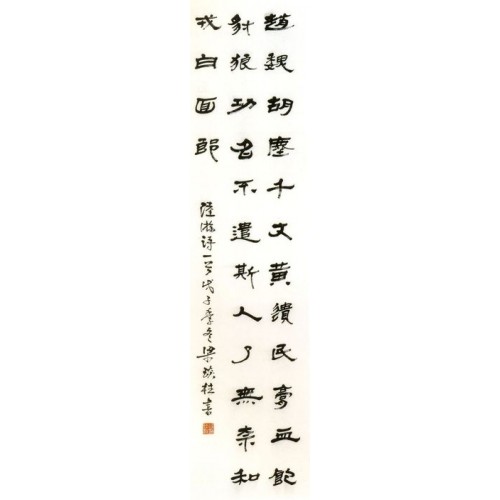 趙魏胡塵千丈黃遺民膏血飽
豺狼功名不遣斯人了無奈和
戎白面郎
陸游詩一首戊子季冬梁桂書